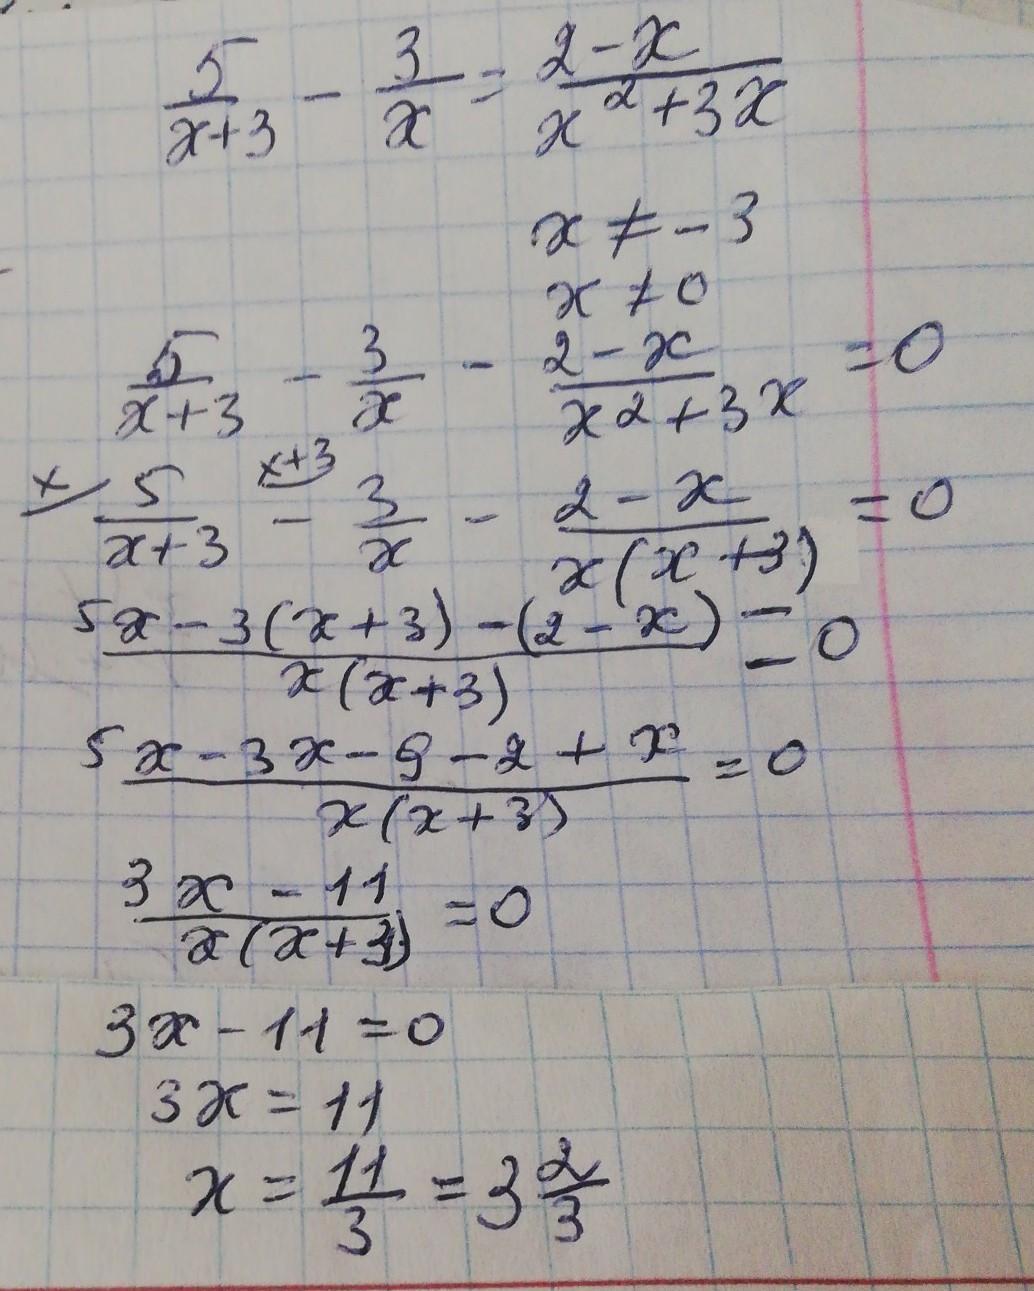 5/(x+3) - 3/x = (2-x)/(x²+3x)
x ≠ -3
x ≠ 0
5/(x+3) - 3/x - (2-x)/(x²+3x) = 0
x/ 5/(x+3) - x+3/ 3/x - (2-x)/(x(x+3)) = 0
(5x-3(x+3)-(2-x))/(x(x+3)) = 0
(5x-3x-9-2+x)/(x(x+3)) = 0
(3x-11)/(x(x+3)) = 0
3x-11=0
3x=11
x = 11/3 = 3 2/3